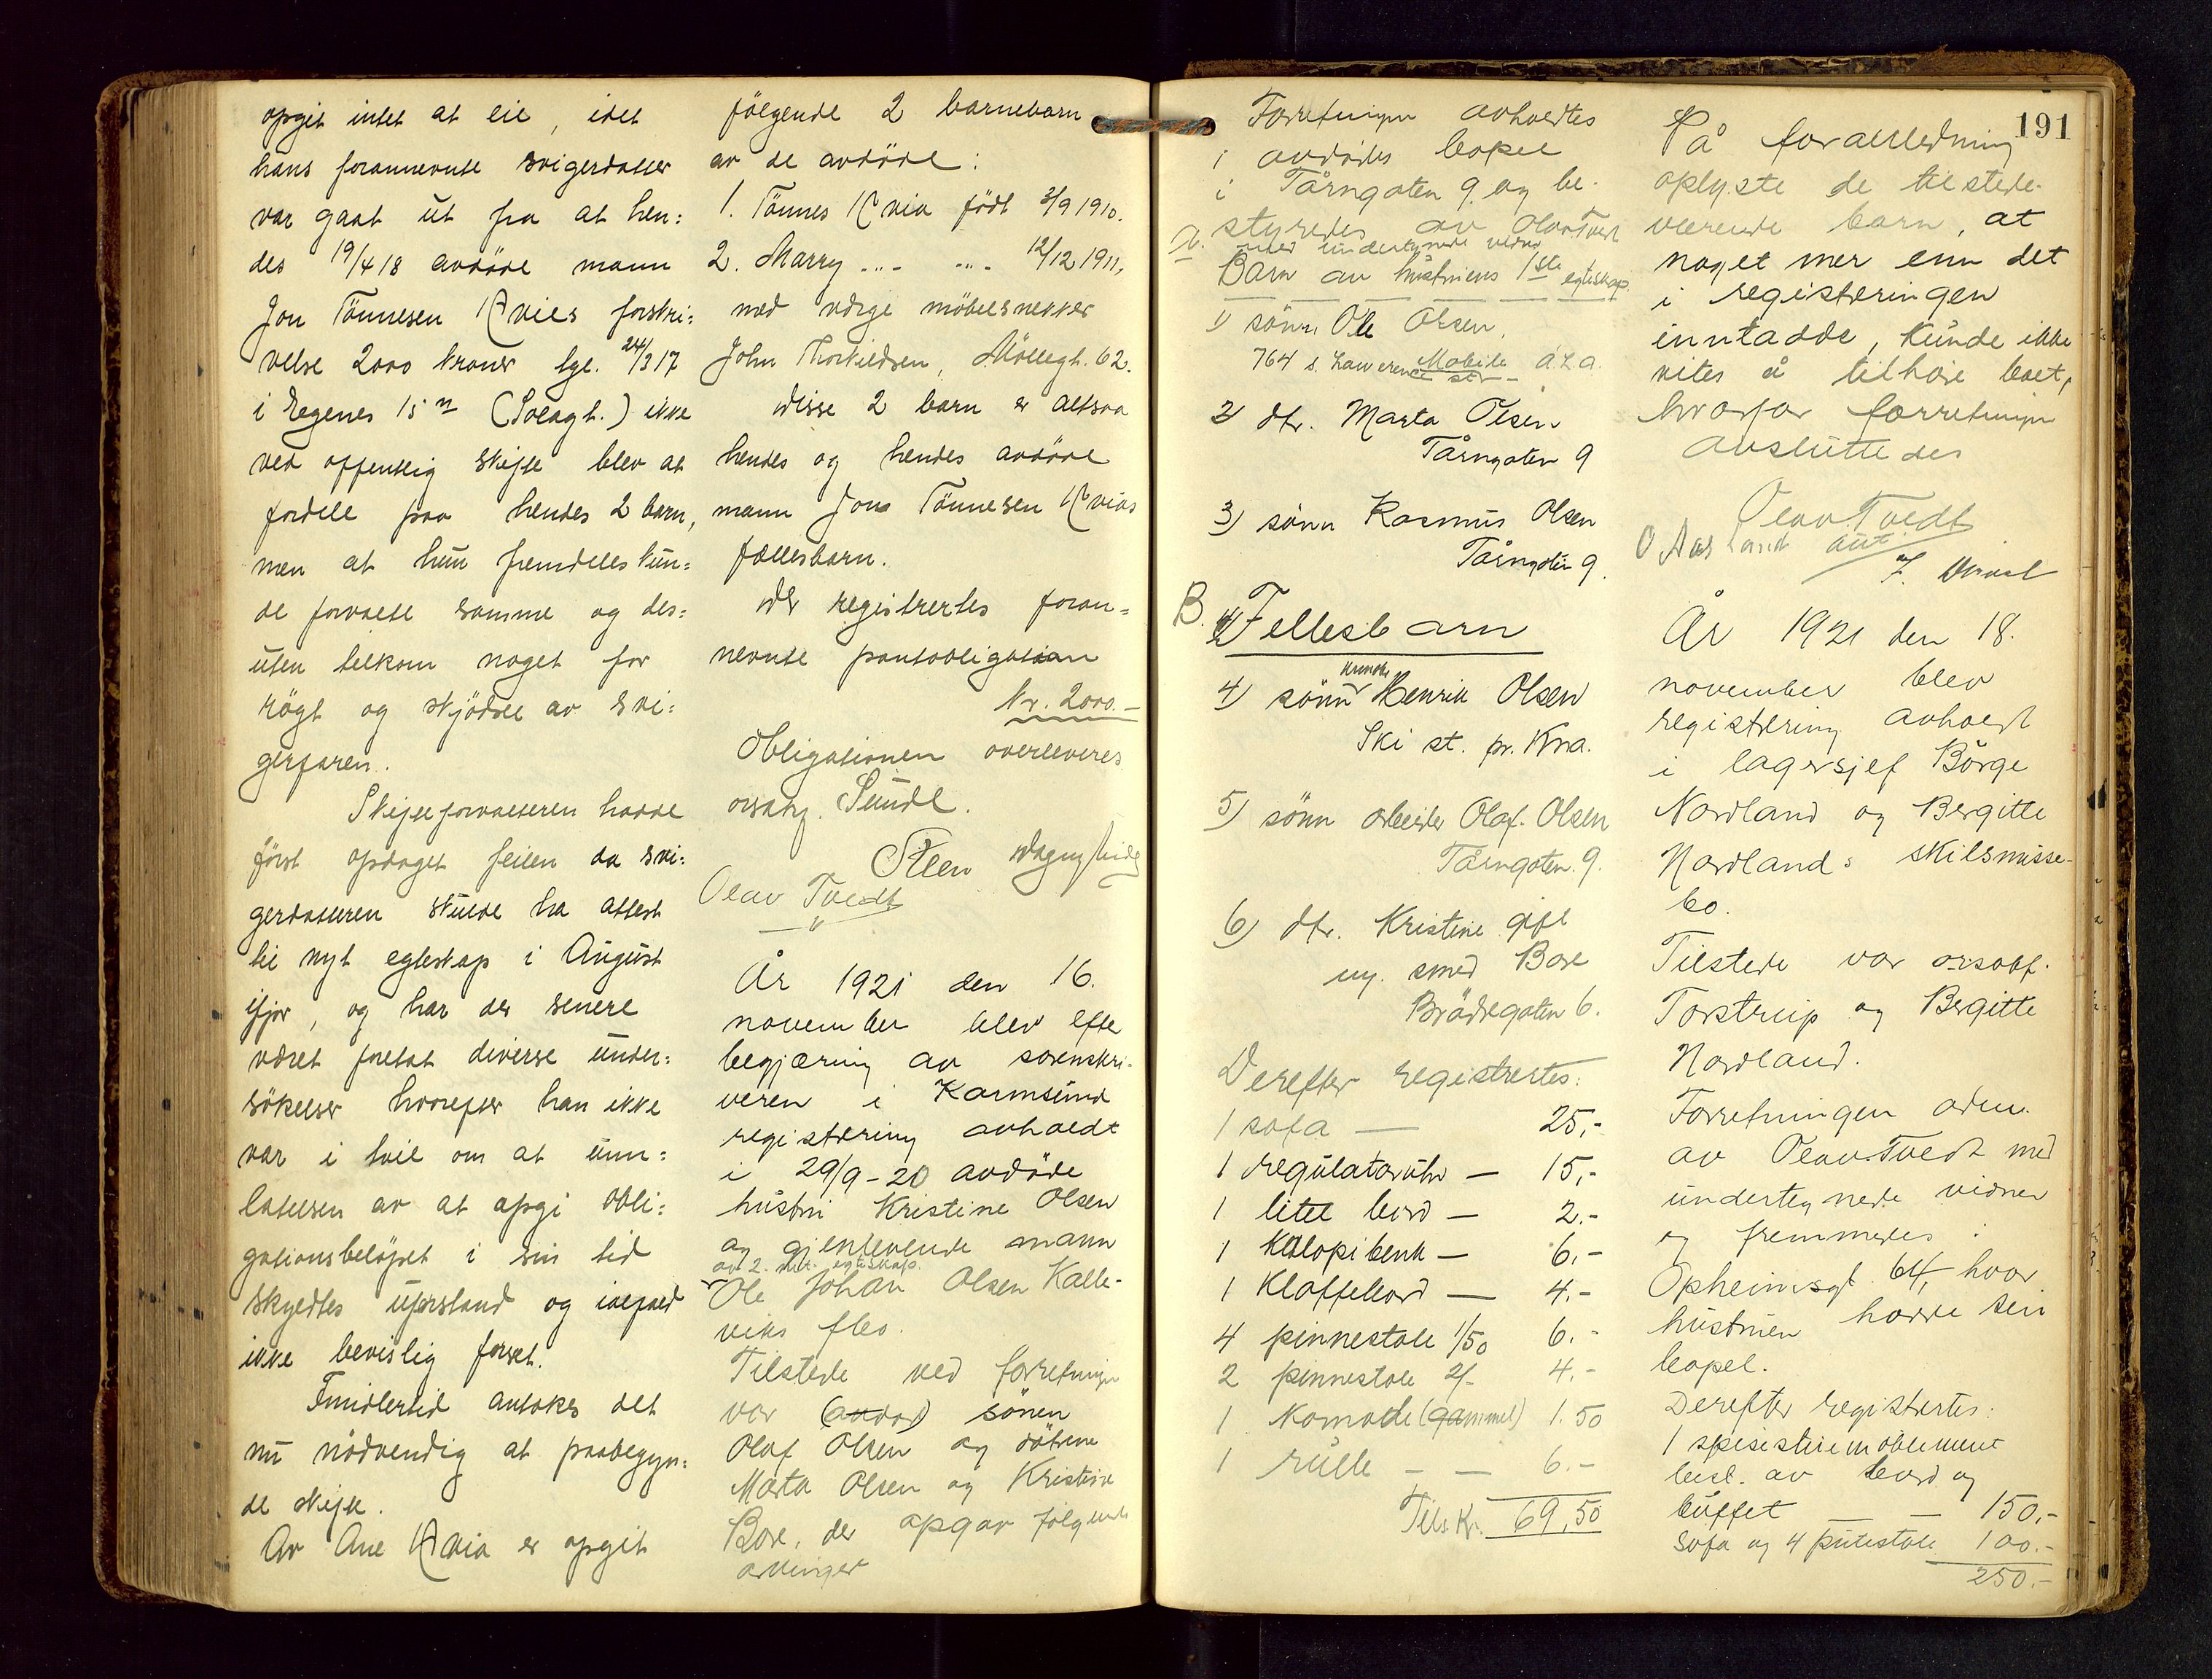 opgit intet at eie, idet
hans forannevnte svigerdatter
var gaat ut fra at hen=
des 19/4 18 avdøde mann
Jon Tønnesen Kvies forskri=
velse 2000 kroner lye. 24/3 17
i Egenes 15 n (Solagt.) ikke
ved offentlig skifte blev at
fordele paa hendes 2 barn,
men at hun fremdeles kun=
de forvalte samme og des=
uten tilkom noget for
røgt og skjøtsel av svi=
gerfaren.
Skifteforvalteren hadde
først opdaget feilen da svi=
gerdatteren skulde ha attest
til nyt egteskap i August
ifjor, og har der senere
været foretat diverse under=
søkelser hvorefter han ikke
var i tvil om at unn=
latelsen av at opgi obli=
gationsbeløpet i sin tid
skyldtes uforstand og ialfald
ikke bevislig forset.
Imidlertid antokes det
nu nødvendig at paabegyn=
de skifte.
Av Ane Kvia er opgit
følgende 2 barnebarn
av de avdøde:
1. Tønnes Kvia født 3/9 1910.
2. Marry -"- -"- 12/12 1911,
med verge møbelsnekker
John Thorkildsen, Møllegt. 62.
Disse 2 barn er altsaa
hendes og hendes avdøde
mann Jons Tønnesen Kvias
fællesbarn.
Der registrertes foran=
nevnte pantobligation
Kr. 2000.-
Obligationen overleveres
orsakf. Sundt.
Steen
Olav Tvedt
År 1921 den 16.
november blev efter
begjæring av sorenskri-
veren i Karmsund
registrering avholdt
i 29/9-20 avdøde
hustru Kristine Olsen
og gjenlevende mann
av 2. egteskap.
Ole Johan Olsen Kalle-
viks fbo.
Tilstede ved forretningen
var (avdøde) sønen
Olaf Olsen og døtrene
Marta Olsen og Kristine
Bore, der opgav følgende
arvinger
Forretningen avholdtes
i avdødes bopel
i Tårngaten 9. og be-
styredes av Olav Tvedt
med undertegnede vidner
a. Barn av hustruens 1ste egteskap
1) sønn Ole Olsen,
764 s. Lawerence st. Mobile ALA.
2) dtr. Marta Olsen
Tårngaten 9
3) sønn Rasmus Olsen
Tårngaten 9.
B. Fellesbarn
4) sønn Henrik Olsen
Ski st. pr. Kra.
5) sønn arbeider Olaf Olsen
Tårngaten 9.
6) dtr. Kristine gift
m. smed Bore
Brødregaten 6.
Derefter registrertes:
1 sofa — 25,-
1 regulatoruhr — 15,-
1 litet bord — 2.-
1 Kalopibenk — 6.-
1 Klaffebord — 4.-
4 pinnestole 1/50 6.-
2 pinnestole 2/- 4.-
1 Komode (gammel) 1.50
1 rulle — — 6.-
Tils Kr. 69,50
191
På foranledning
oplyste de tilstede-
værende barn, at
noget mer enn det
i registreringen
inntadde, kunde ikke
vites å tilhøre boet,
hvorfor forretningen
avsluttedes
Olav Tvedt
aut.
O Aasland
År 1921 den 18.
november blev
registrering avholdt
i lagersjef Børge
Nordland og Bergitte
Nordlands skilsmisse-
bo.
Tilstede var orsakf.
Torstrup og Bergitte
Nordland.
Forretningen adm.
av Olav Tvedt med
undertegnede vidner
og fremmedes i
Opheimsgt 64, hvor
hustruen hadde sin
bopel.
Derefter registrertes:
1 spisestuemøblement
best. av bord og
buffet — — 150,-
Sofa og 4 putestole 100.-
250.-